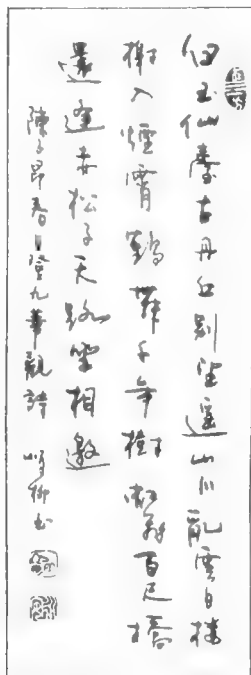 白玉仙臺古丹丘別望遙山川亂雲日樓
榭入煙霄鶴舞千年樹虹飛百尺橋
還逢赤松子天路坐相邀
陳子昂春日登九華觀詩 柳书